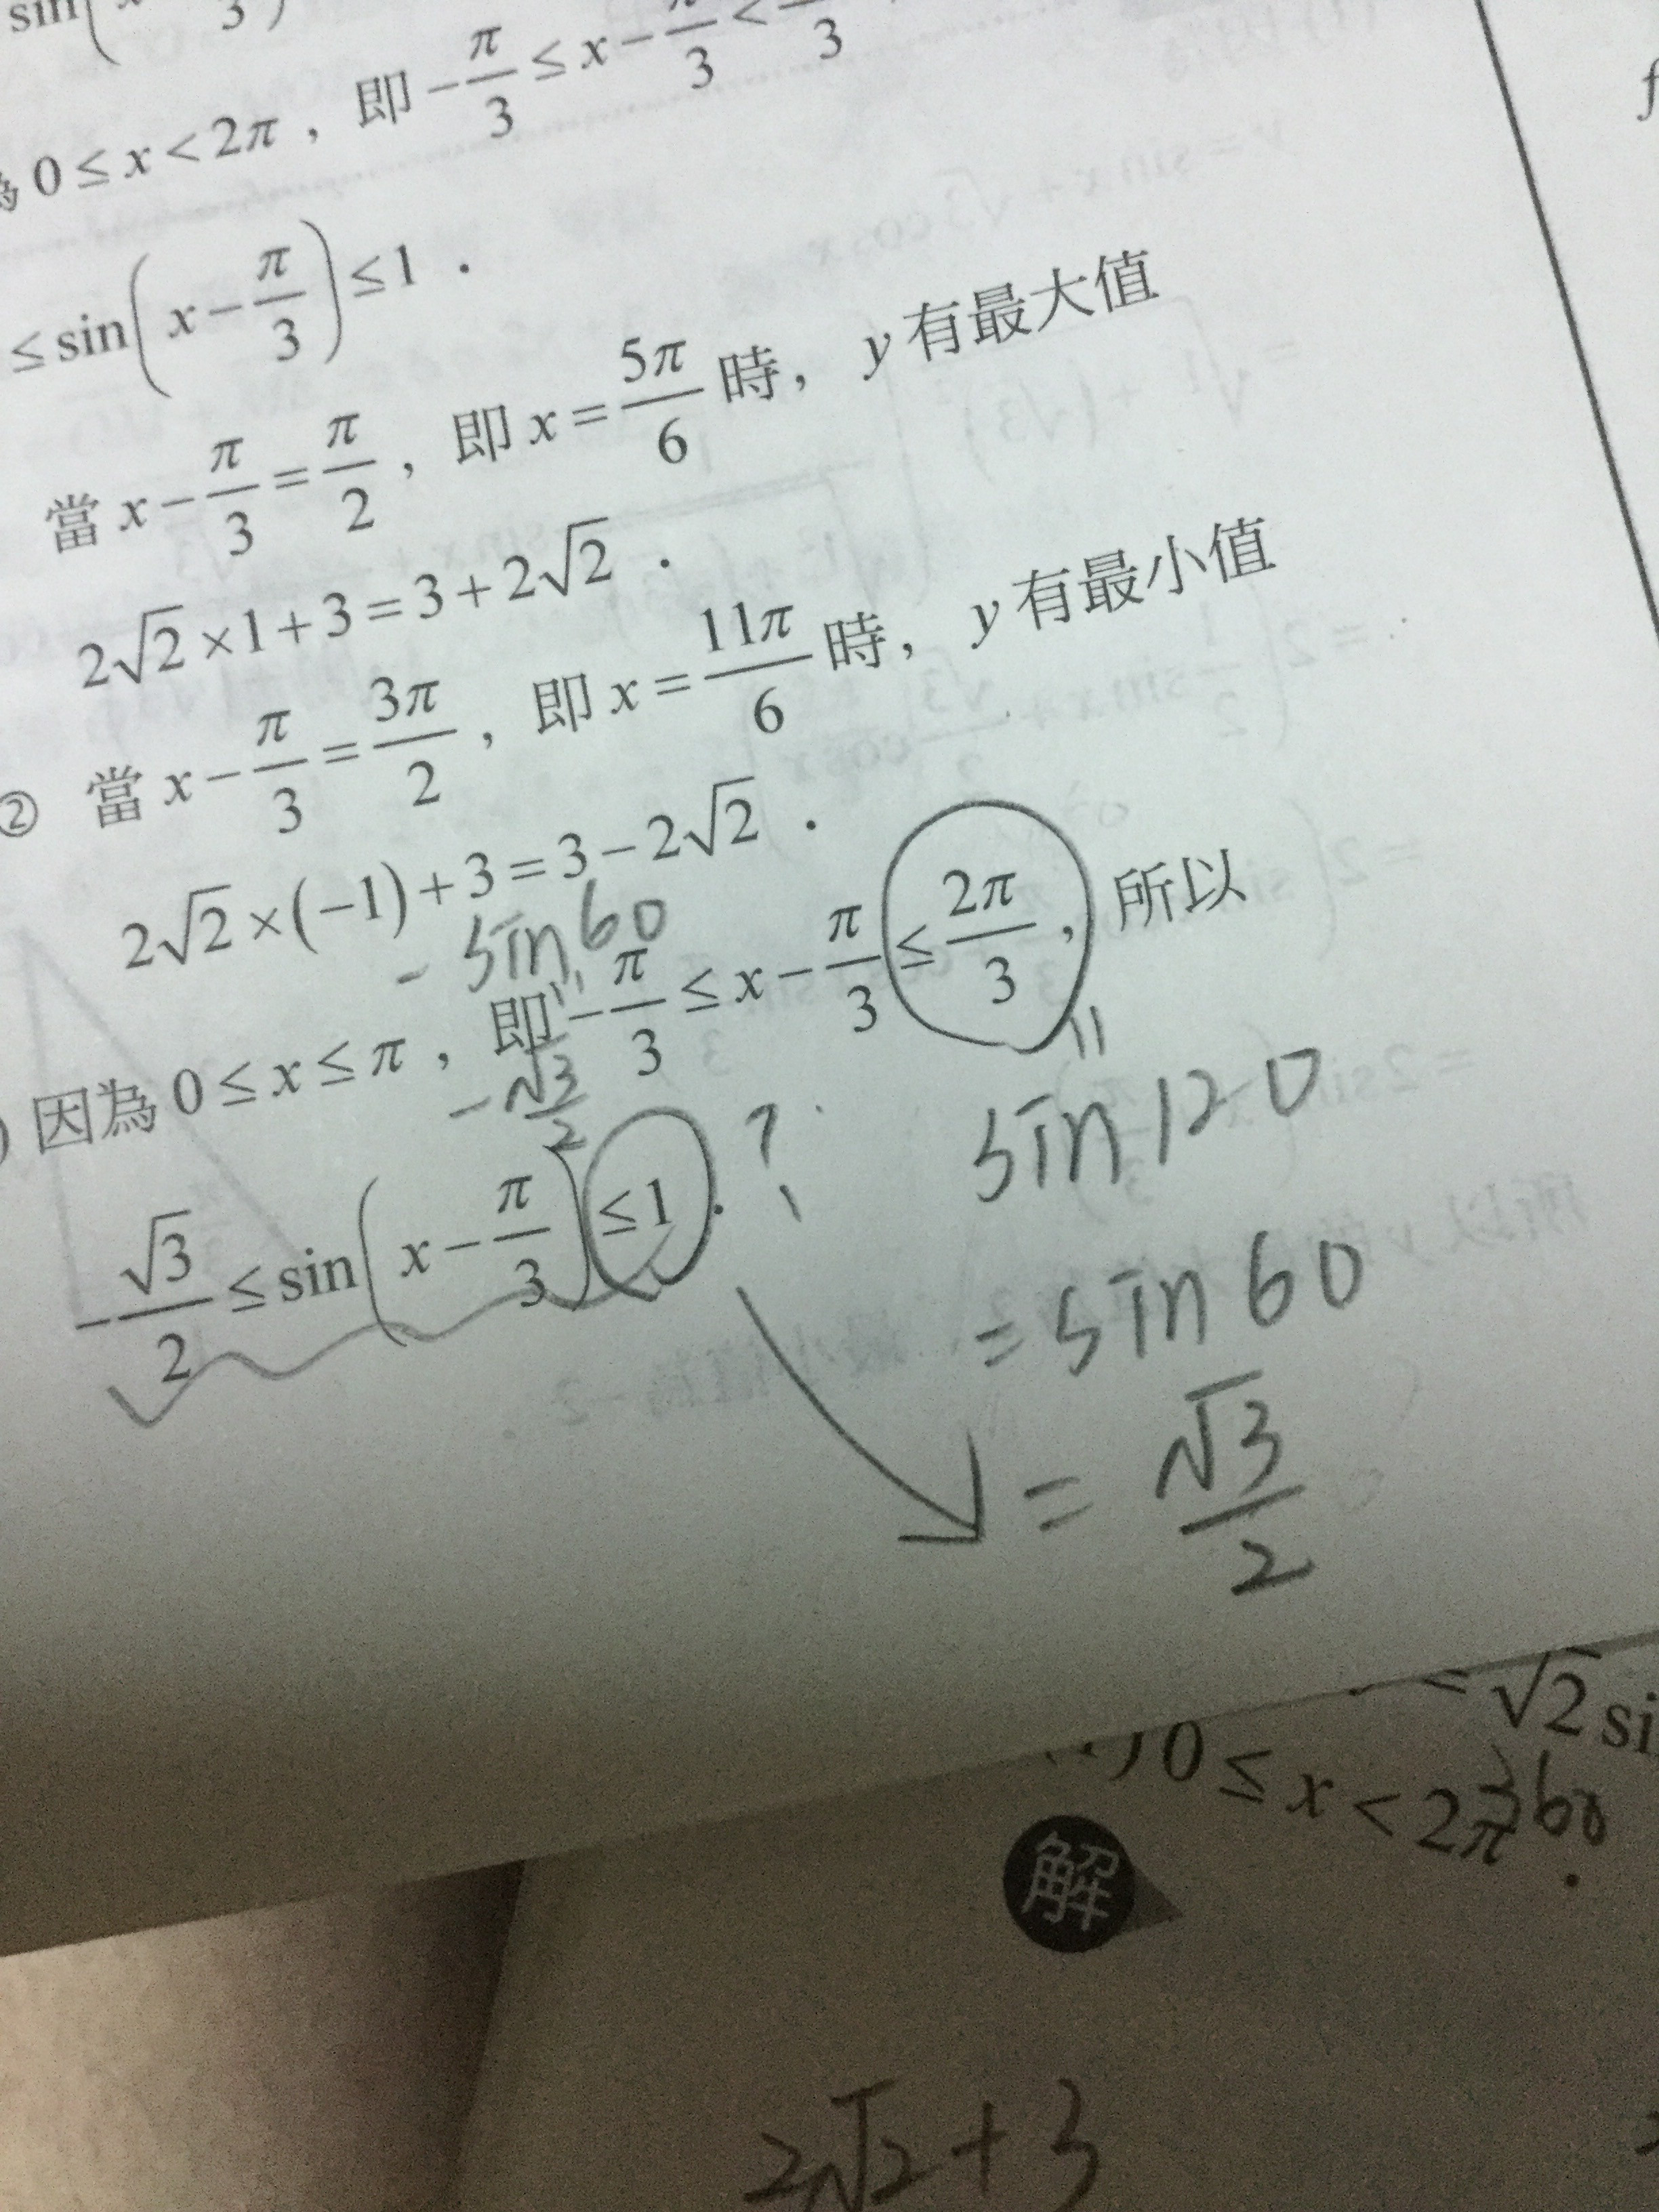 0 ≤ x < 2π , 即 -π/3 ≤ x - π/3 <
≤ sin(x - π/3) ≤ 1 .
當 x - π/3 = π/2 , 即 x = 5π/6 時, y 有最大值
2√2 × 1 + 3 = 3 + 2√2 .
② 當 x - π/3 = 3π/2 , 即 x = 11π/6 時, y 有最小值
2√2 × (-1) + 3 = 3 - 2√2 .
- sin 60
) 因為 0 ≤ x ≤ π , 即 -π/3 ≤ x - π/3 ≤ 2π/3 , 所以
-√3/2
-√3/2 ≤ sin(x - π/3) ≤ 1 . ?
sin 120
= sin 60
= √3/2
= √2 si
) 0 ≤ x < 2π 360 .
解
2√2 + 3